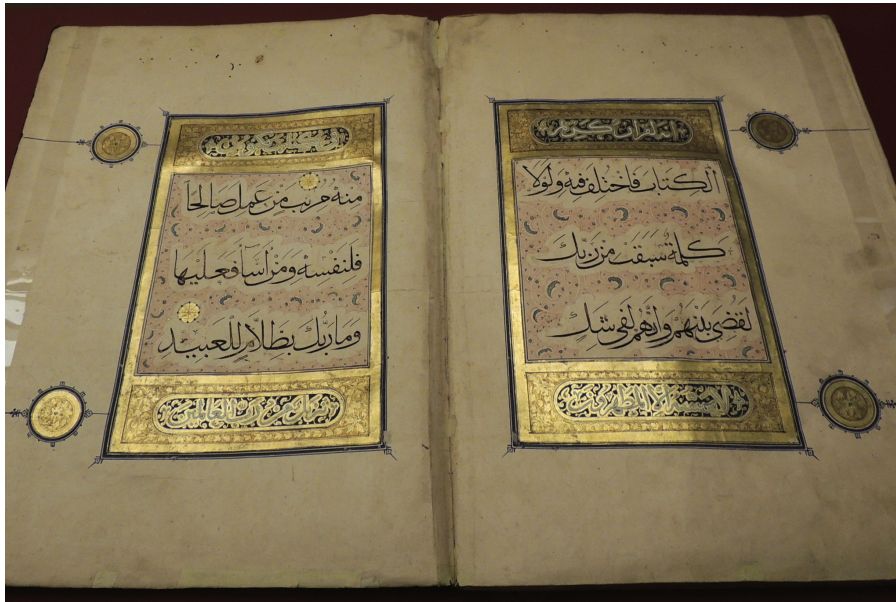 انه لقران كريم
الكِتَابَ فَاخْتُلِفَ فِيهِ وَلَوْلَا
كَلِمَةٌ سَبَقَتْ مِنْ رَبِّكَ
لَقُضِيَ بَيْنَهُمْ وَإِنَّهُمْ لَفِي شَكٍّ
لا يمسه الا المطهرون
في كتاب مكنون
مِنْهُ مُرِيبٍ مَنْ عَمِلَ صَالِحًا
فَلِنَفْسِهِ وَمَنْ أَسَاءَ فَعَلَيْهَا
وَمَا رَبُّكَ بِظَلَّامٍ لِلْعَبِيدِ
تنزيل من رب العالمين